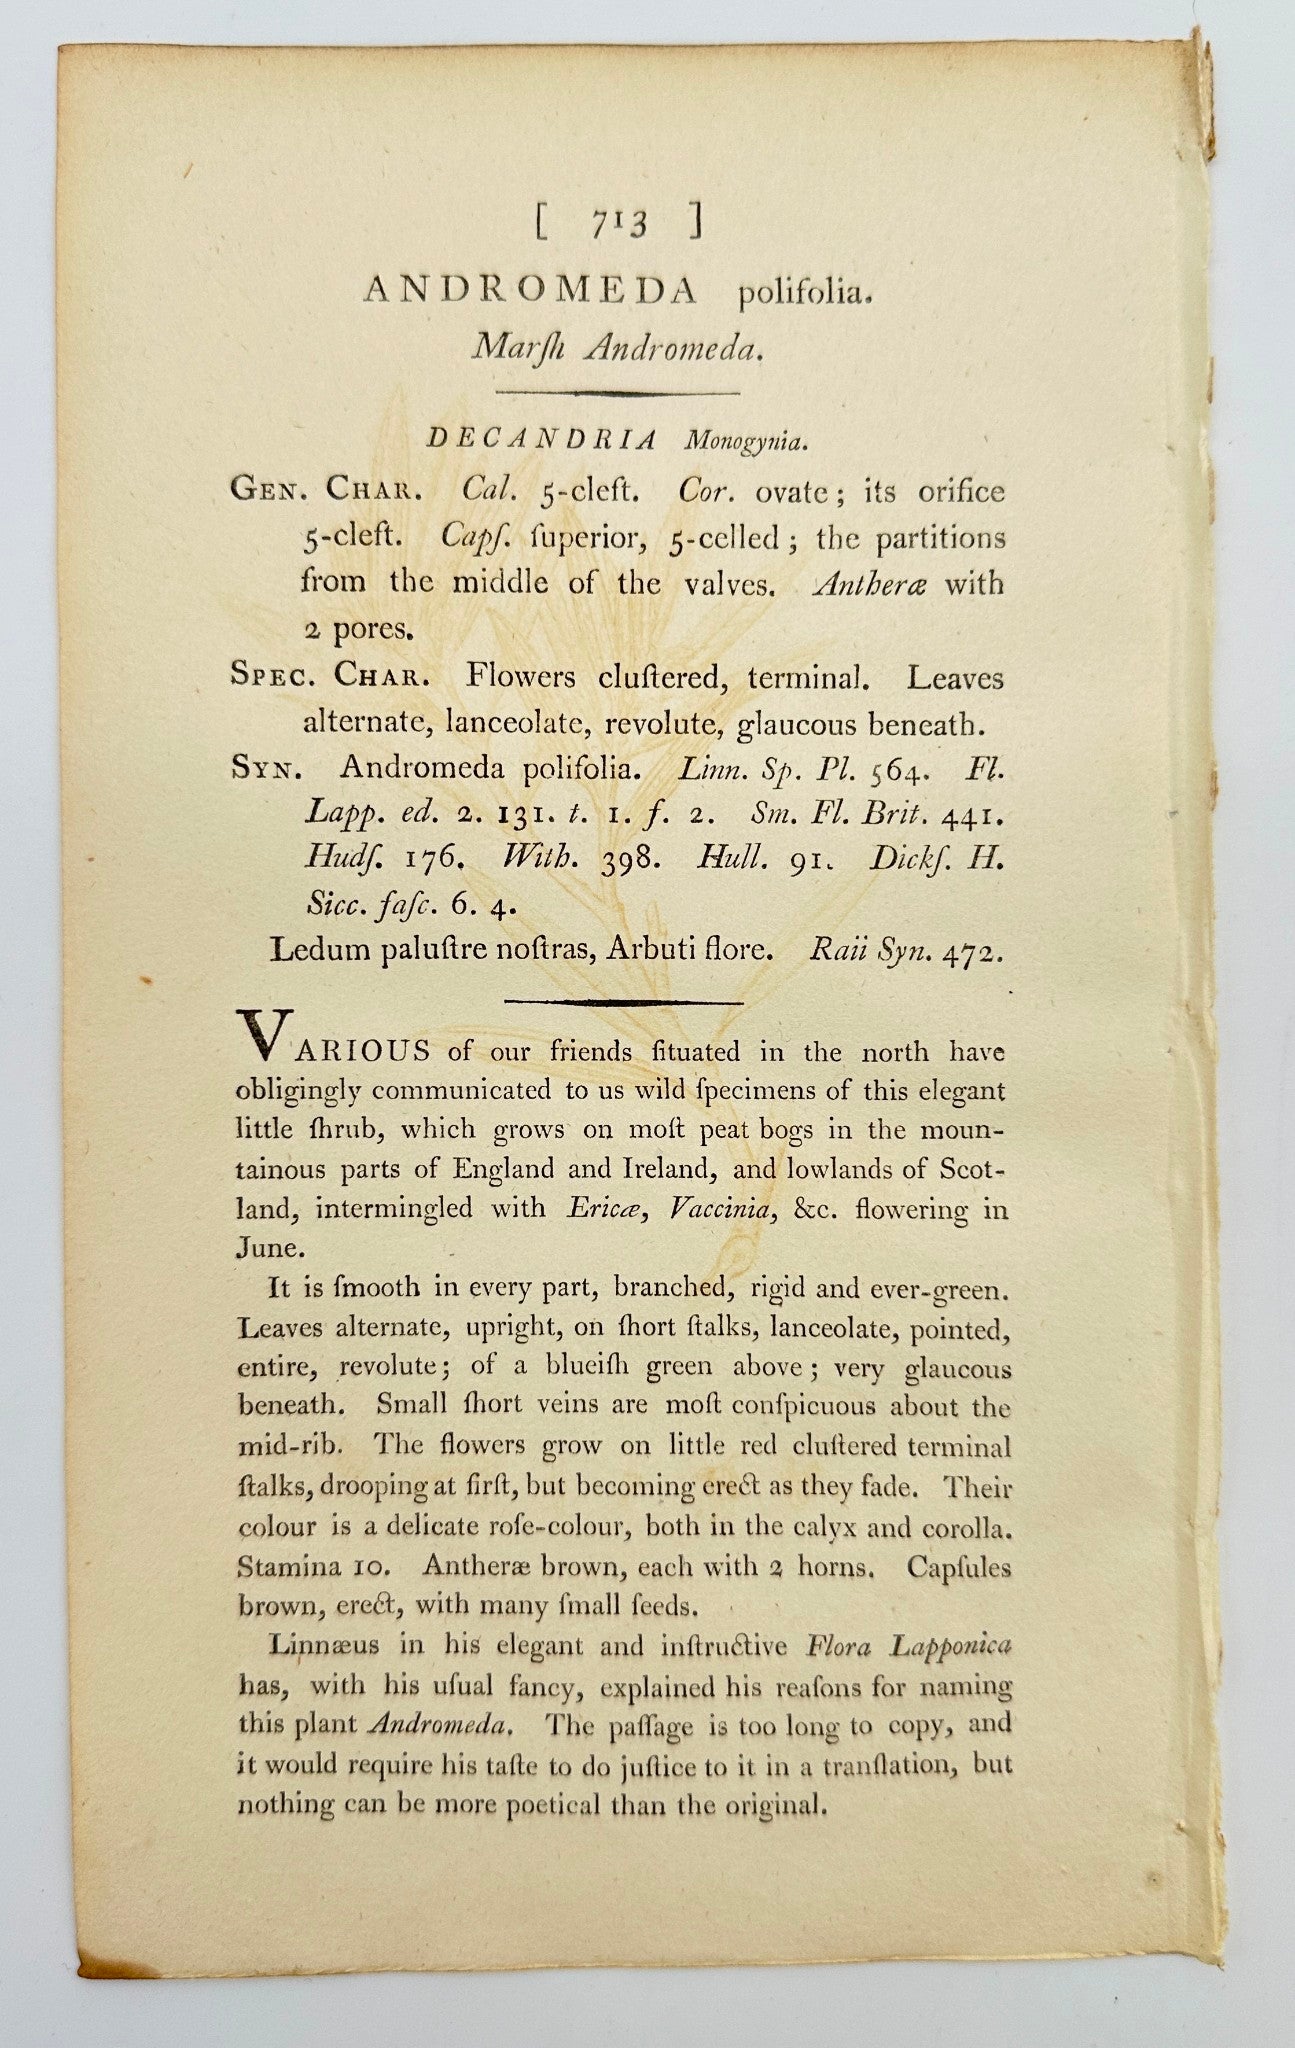 [ 713 ]
ANDROMEDA polifolia.
Marſh Andromeda.
DECANDRIA Monogynia.
GEN. CHAR. Cal. 5-cleft. Cor. ovate; its orifice
5-cleft. Capſ. ſuperior, 5-celled; the partitions
from the middle of the valves. Antheræ with
2 pores.
SPEC. CHAR. Flowers cluſtered, terminal. Leaves
alternate, lanceolate, revolute, glaucous beneath.
SYN. Andromeda polifolia. Linn. Sp. Pl. 564. Fl.
Lapp. ed. 2. 131. t. 1. f. 2. Sm. Fl. Brit. 441.
Hudſ. 176. With. 398. Hull. 91. Dickſ. H.
Sicc. faſc. 6. 4.
Ledum paluſtre noſtras, Arbuti flore. Raii Syn. 472.
VARIOUS of our friends ſituated in the north have
obligingly communicated to us wild ſpecimens of this elegant
little ſhrub, which grows on moſt peat bogs in the moun-
tainous parts of England and Ireland, and lowlands of Scot-
land, intermingled with Ericæ, Vaccinia, &c. flowering in
June.
It is ſmooth in every part, branched, rigid and ever-green.
Leaves alternate, upright, on ſhort ſtalks, lanceolate, pointed,
entire, revolute; of a blueiſh green above; very glaucous
beneath. Small ſhort veins are moſt conſpicuous about the
mid-rib. The flowers grow on little red cluſtered terminal
ſtalks, drooping at firſt, but becoming erect as they fade. Their
colour is a delicate roſe-colour, both in the calyx and corolla.
Stamina 10. Antheræ brown, each with 2 horns. Capſules
brown, erect, with many ſmall ſeeds.
Linnæus in his elegant and inſtructive Flora Lapponica
has, with his uſual fancy, explained his reaſons for naming
this plant Andromeda. The paſſage is too long to copy, and
it would require his taſte to do juſtice to it in a tranſlation, but
nothing can be more poetical than the original.